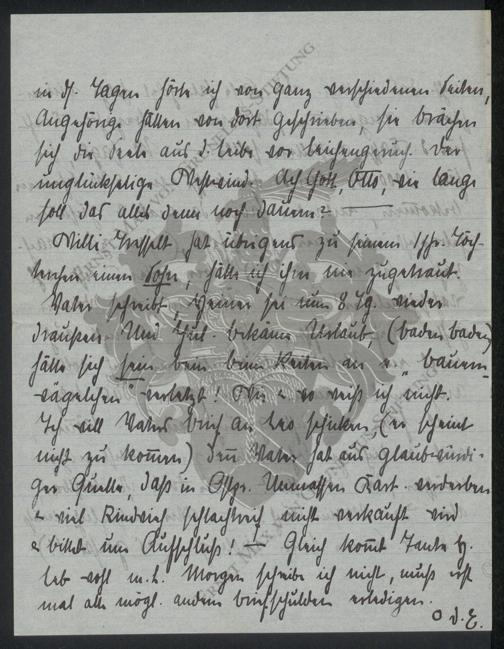 in d. Tagen hörte ich von ganz verschiedenen Seiten,
Angehörige hätten von dort geschrieben, sie brächen
sich die Seele aus d. Leibe vor Leichengeruch. Der
unglückselige Westwind. Ach Gott, Otto, wie lange
soll das alles denn noch dauern?
Willi hat übrigens zu seinem 1jhr. Töch-
terchen einen Sohn, hätte ich ihm nie zugetraut.
Vater schreibt, Heiner sei nun 8 Tg. wieder
draußen. Und Jul. bekäme Urlaub (Baden Baden)
hätte sich sein Bein beim Reiten an e. „Bauern-
wägelchen" verletzt! Wie & wo weiß ich nicht.
Ich will Vaters Brief an Leo schicken (er scheint
nicht zu kommen) denn Vater hat aus glaubwürdi-
ger Quelle, daß in Ostpr. Unmassen Kart. verderben
& viel Rindvieh schlachtreif nicht verkauft wird
& bittet um Aufschluß! — Gleich kommt Tante H.
leb wohl m. L. Morgen schreibe ich nicht, muß erst
mal alle mögl. andern Briefschulden erledigen.
D. E.
STIFTUNG